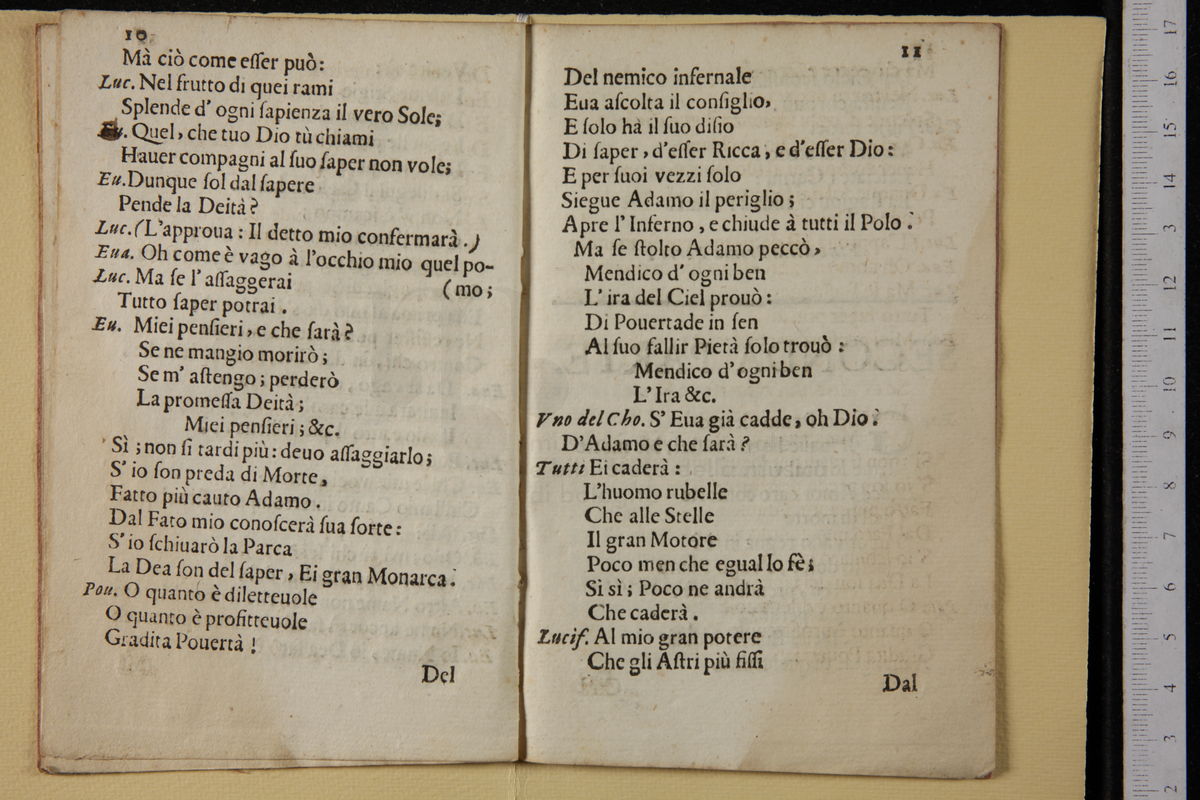 10
Mà ciò come eſſer può:
Luc. Nel frutto di quei rami
Splende d' ogni ſapienza il vero Sole;
Eu. Quel, che tuo Dio tù chiami
Hauer compagni al ſuo ſaper non vole;
Eu. Dunque ſol dal ſapere
Pende la Deità?
Luc. (L'approua: Il detto mio confermarà.)
Eua. Oh come è vago à l'occhio mio quel po-
Luc. Ma ſe l' aſſaggerai (mo;
Tutto ſaper potrai.
Eu. Miei penſieri, e che ſarà?
Se ne mangio morirò;
Se m' aſtengo; perderò
La promeſſa Deità;
Miei penſieri; &c.
Sì; non ſi tardi più: deuo aſſaggiarlo;
S' io ſon preda di Morte,
Fatto più cauto Adamo.
Dal Fato mio conoſcerà ſua ſorte:
S' io ſchiuarò la Parca
La Dea ſon del ſaper, Ei gran Monarca.
Pou. O quanto è diletteuole
O quanto è profitteuole
Gradita Pouertà!
Del
11
Del nemico infernale
Eua aſcolta il conſiglio,
E ſolo hà il ſuo diſio
Di ſaper, d'eſſer Ricca, e d'eſſer Dio:
E per ſuoi vezzi ſolo
Siegue Adamo il periglio;
Apre l' Inferno, e chiude à tutti il Polo.
Ma ſe ſtolto Adamo peccò,
Mendico d' ogni ben
L' ira del Ciel prouò:
Di Pouertade in ſen
Al ſuo fallir Pietà ſolo trouò:
Mendico d' ogni ben
L' Ira &c.
Vno del Cho. S' Eua già cadde, oh Dio!
D'Adamo e che ſarà?
Tutti Ei caderà:
L'huomo rubelle
Che alle Stelle
Il gran Motore
Poco men che egual lo fè;
Si sì; Poco ne andrà
Che caderà.
Lucif. Al mio gran potere
Che gli Aſtri più fiſſi
Dal
17
16
15
14
3
12
11
10
9
8
7
6
5
4
3
2